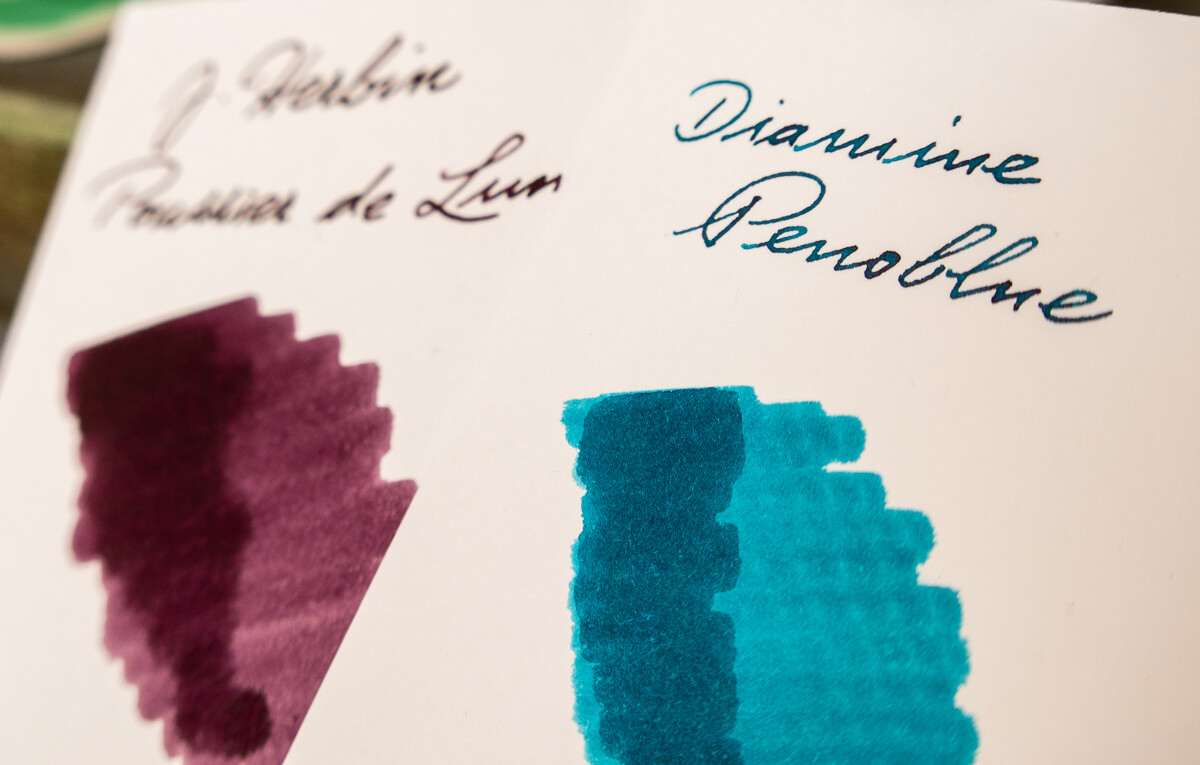 J. Herbin
Poussière de Lun
Diamine
Penoblue